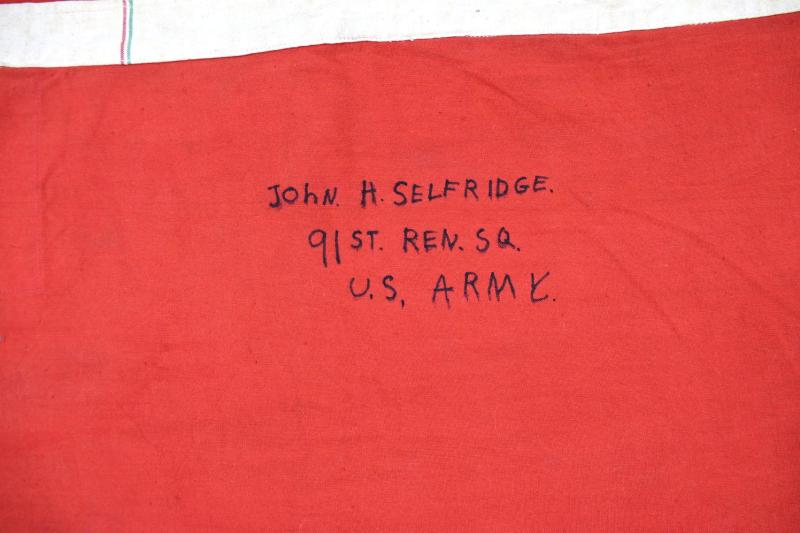 JOhN. H. SELFRIDGE.
91ST. REN. SQ.
U.S. ARMY.